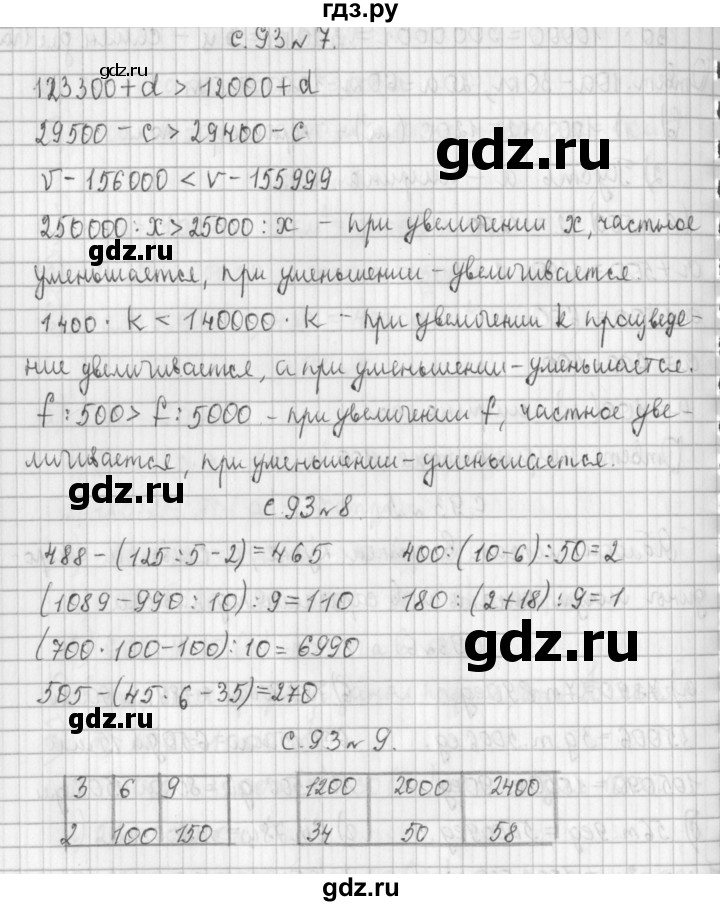 гдз.ру
с.93 №7.
gdz.ru
123300+d > 12000+d
29500 - c > 29400 - c
gdz.ru
v - 156000 < v - 155999
250000 : x > 25000 : x - при увеличении x, частное
gdz.ru
уменьшается, при уменьшении - увеличивается.
1400 · k < 140000 · k - при увеличении k произведе-
ние увеличивается, а при уменьшении - уменьшается.
f : 500 > f : 5000 - при увеличении f, частное уве-
личивается, при уменьшении - уменьшается.
gdz.ru
с.93 №8.
488 - (125 : 5 - 2) = 465 400 : (10 - 6) : 50 = 2
(1089 - 990 : 10) : 9 = 110 180 : (2 + 18) : 9 = 1
gdz.ru
(700 · 100 - 100) : 10 = 6990
505 - (45 · 6 - 35) = 270
gdz.ru
с.93 №9.
3 6 9 1200 2000 2400
2 100 150 34 50 58
gdz.ru